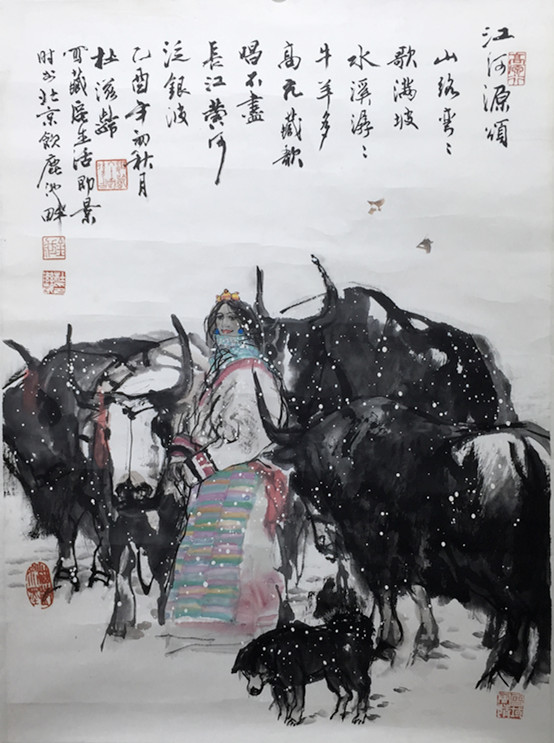 江河源頌
山路弯々
歌满坡
水溪潺々
牛羊多
高亢藏歌
唱不盡
長江黄河
泛银波
乙酉年初秋月
杜滋龄
写藏族生活即景
时于北京飲鹿池畔